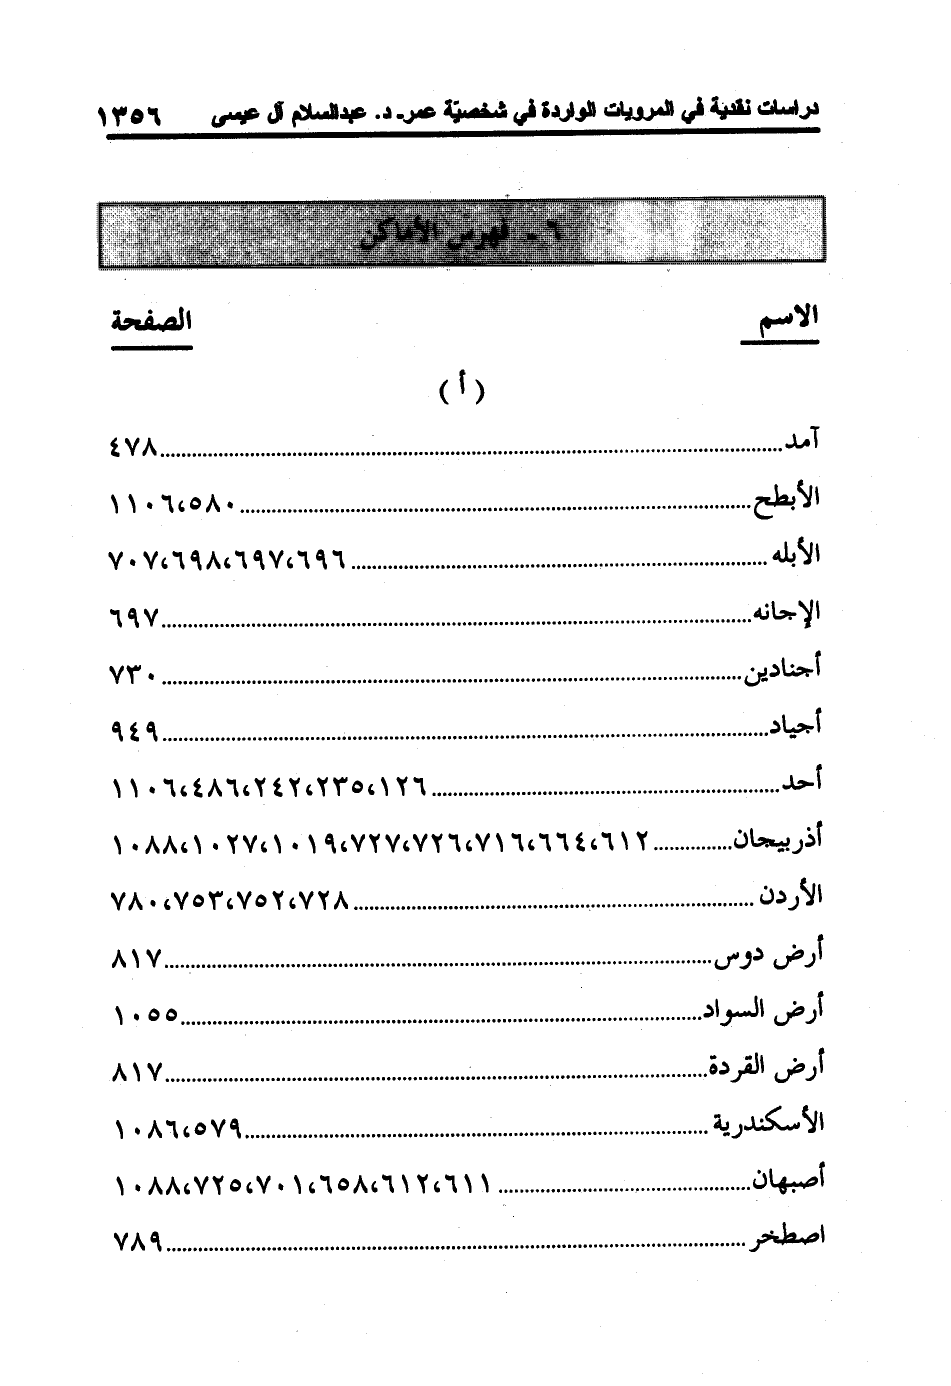 دراسات نقدية في المرويات الواردة في شخصيّة عمر ـ د. عبدالسلام آل عيسى ١٣٥٦
٦ ـ فهرس الأماكن
الاسم الصفحة
( أ )
آمد.....٤٧٨
الأبطح.....٥٨٠، ١١٠٦
الأبله.....٦٩٦، ٦٩٧، ٦٩٨، ٧٠٧
الإجانه.....٦٩٧
أجنادين.....٧٣٠
أجياد.....٩٤٩
أحد.....١٢٦، ٢٣٥، ٢٤٢، ٤٨٦، ١١٠٦
أذربيجان.....٦١٢، ٦٦٤، ٧١٦، ٧٢٦، ٧٢٧، ١٠١٩، ١٠٢٧، ١٠٨٨
الأردن.....٧٢٨، ٧٥٢، ٧٥٣، ٧٨٠
أرض دوس.....٨١٧
أرض السواد.....١٠٥٥
أرض القردة.....٨١٧
الأسكندرية.....٥٧٩، ١٠٨٦
أصبهان.....٦١١، ٦١٢، ٦٥٨، ٧٠١، ٧٢٥، ١٠٨٨
اصطخر.....٧٨٩